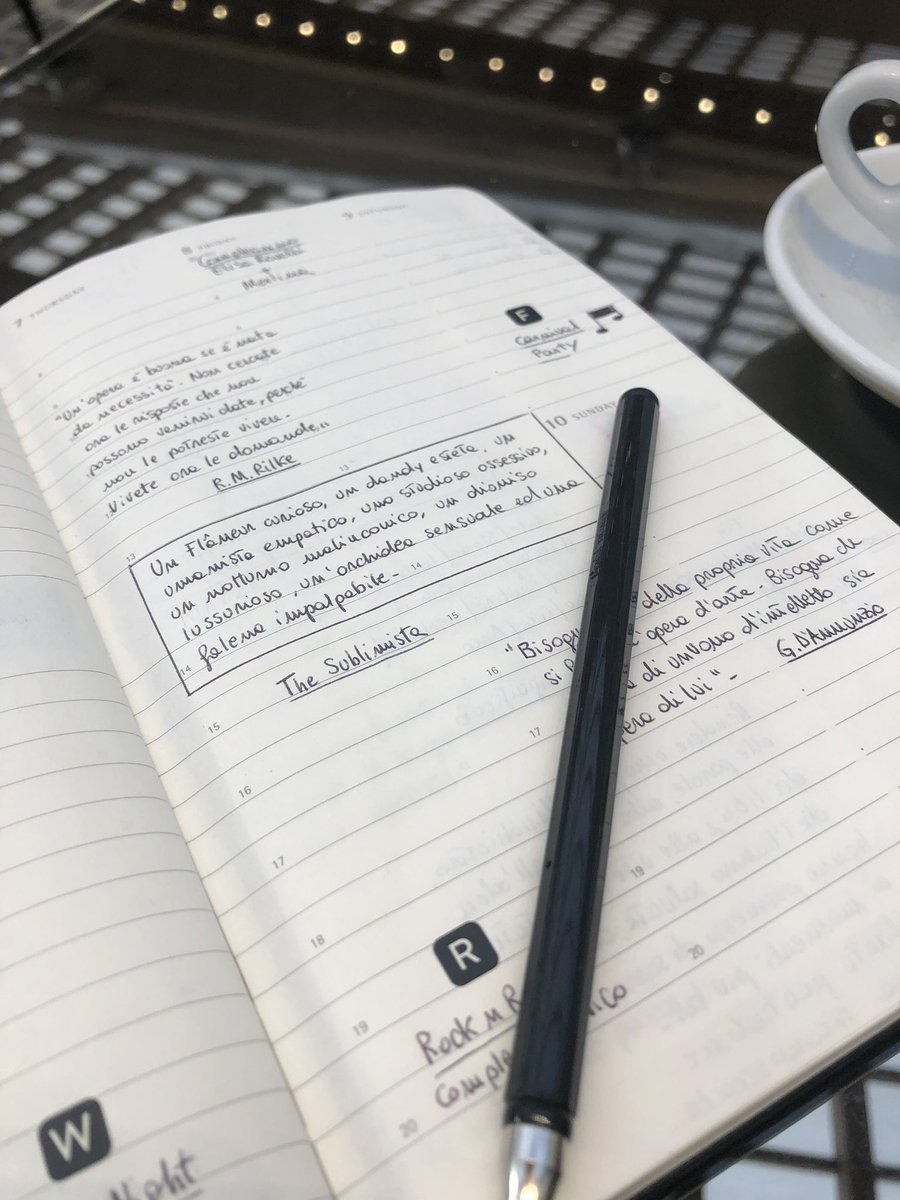 7 THURSDAY
8 FRIDAY
9 SATURDAY
Compleanno
Elisa
+
Martina
"Un'opera è buona se è nata
da necessità. Non cercate
ora le risposte che non
possono venirvi date, perché
non le potreste vivere.
Vivete ora le domande."
R.M. Rilke
F
Carnival
Party
10 SUNDAY
13
13
Un Flâneur curioso, un dandy esteta, un
umanista empatico, uno studioso ossessivo,
un notturno malinconico, un dionisio
lussurioso, un'orchidea sensuale ed una
falena impalpabile.
14
14
The Sublimista
15
15
"Bisogn della propria vita come
si l'opera d'arte. Bisogna
di un uomo d'intelletto sia
pera di lui".
G. D'Annunzio
16
16
17
17
18
19
19
20
20
R
Rock n R
Comple ico
W
Night